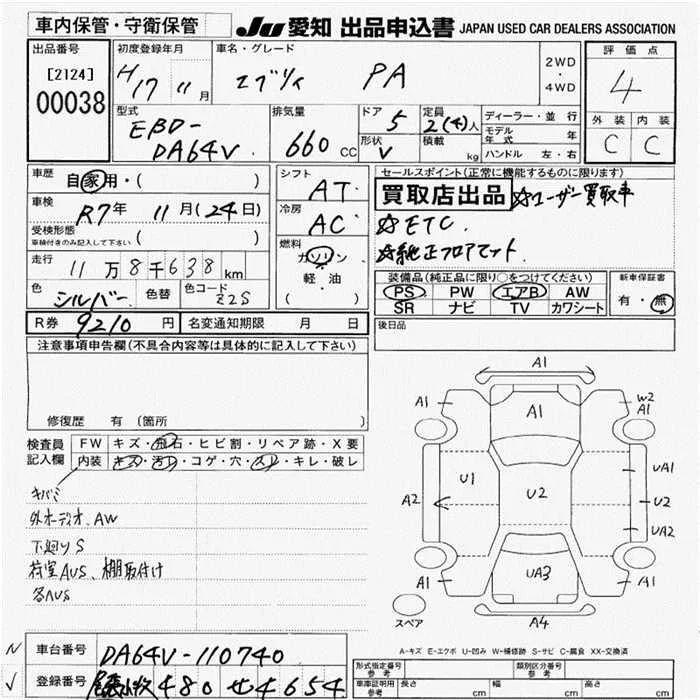 車内保管・守衛保管
JU 愛知 出品申込書 JAPAN USED CAR DEALERS ASSOCIATION
出品番号
[2124]
00038
初度登録年月
H17 11月
車名・グレード
エブリィ PA
2WD
・
4WD
評価点
4
外装 内装
C C
型式
EBD-
DA64V
排気量
660 CC
ドア 5
形状 V
定員 2(4)人
積載 kg
ディーラー・並行
モデル年式 年
ハンドル 左・右
車歴 自家用・( )
車検 R7年 11月(24日)
受検形態
車検付きのみ記入して下さい ( )
走行 11万8千638km
色 シルバー 色替 色コード Z2S
シフト
AT
冷房
AC
燃料
ガソリン
軽・油
( )
セールスポイント(正常に機能するものに限ります)
買取店出品 ☆ユーザー買取車
☆ETC
☆純正フロアマット
装備品(純正品に限り○をつけてください)
PS PW エアB AW
SR ナビ TV カワシート
新車保証書
有・無
R券 9210円 名変通知期限 月 日
後日品
注意事項申告欄(不具合内容等は具体的に記入して下さい)
修復歴 有 〔箇所 〕
検査員
記入欄
FW キズ・飛石・ヒビ割・リペア跡・X要
内装 キズ・汚れ・コゲ・穴・スレ・キレ・破レ
キバミ
外オーディオ、AW
下廻りS
荷室AUS、棚取付け
各AUS
A1
A1 A1 W2
A1
U1 U2 UA1
A2 U2
UA2
A1 UA3 A1
A4
スペア
A-キズ E-エクボ U-凹み W-補修跡 S-サビ C-腐食 XX-交換済
車台番号 DA64V-110740
登録番号 尾張小牧 480 せ 4654
形式指定番号
参考
類別区分番号
参考
車庫証明用
参考
長さ cm 幅 cm 高さ cm